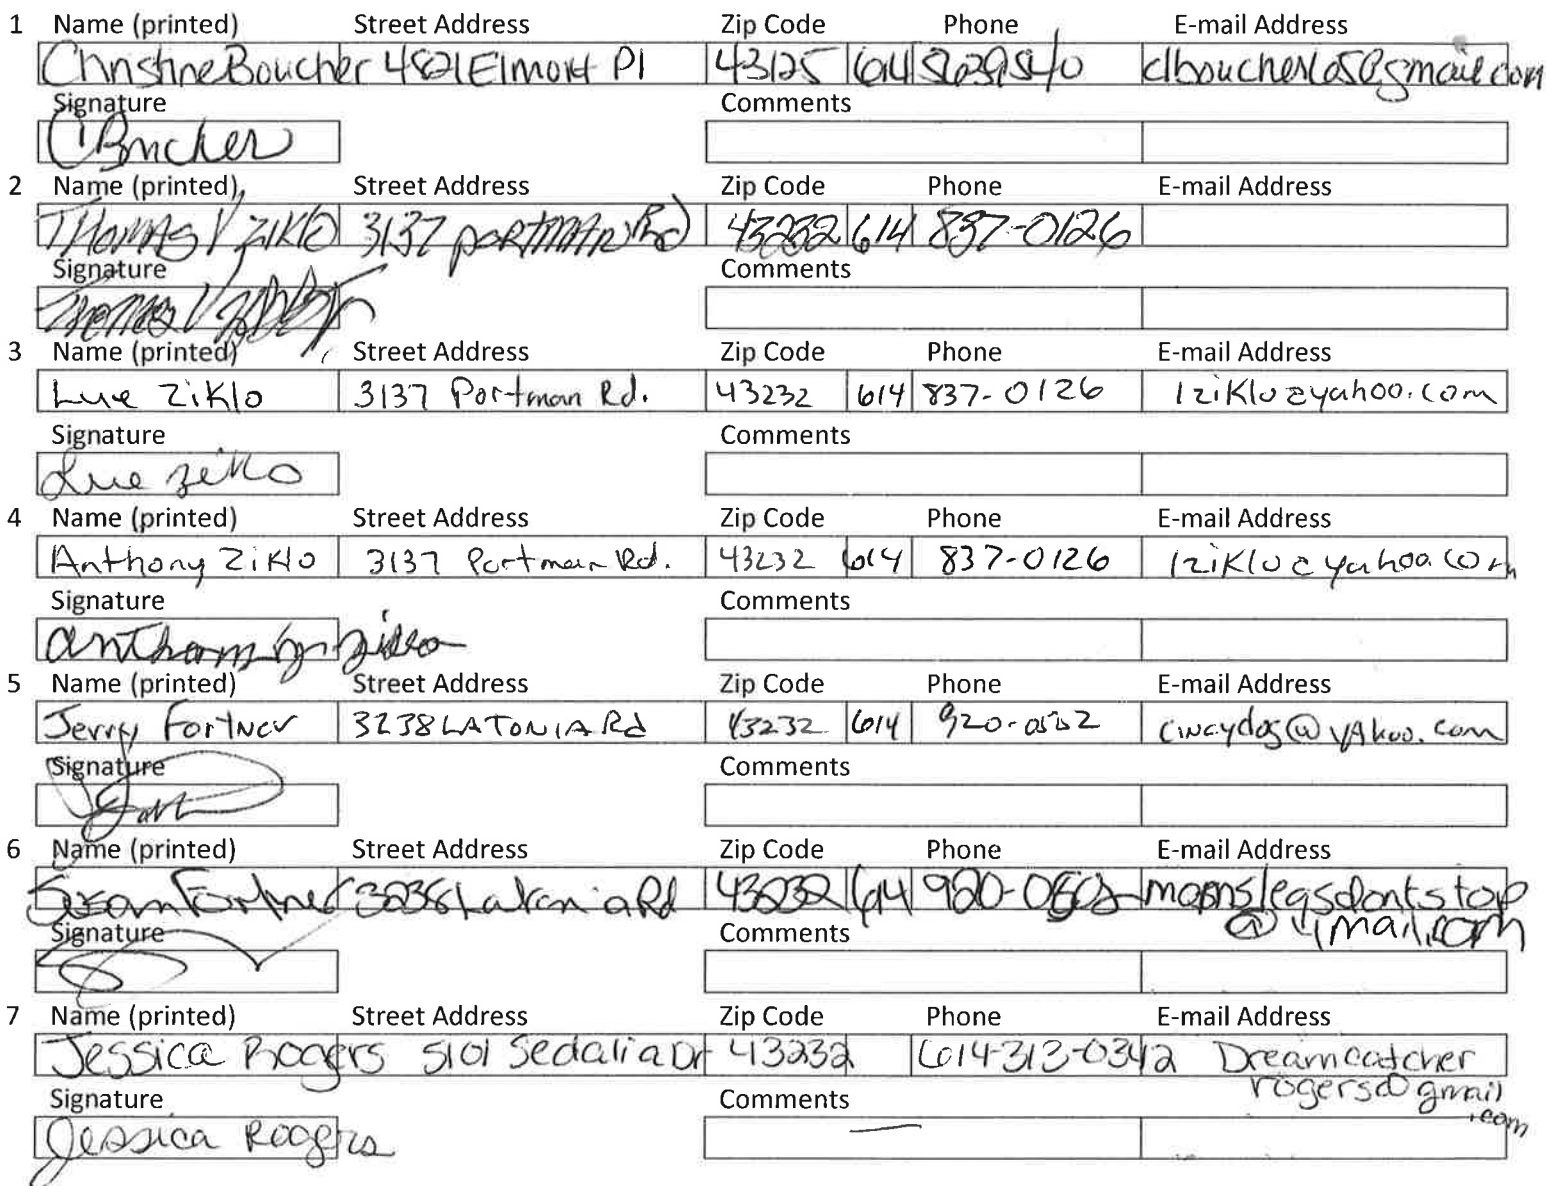 1 Name (printed) Street Address Zip Code Phone E-mail Address
Christine Boucher 4821 Elmont Pl 43125 614
Signature Comments
CBoucher
2 Name (printed) Street Address Zip Code Phone E-mail Address
THOMAS V ZIKLO 3137 PORTMAN Rd 43232 614 837-0126
Signature Comments
Thomas V
3 Name (printed) Street Address Zip Code Phone E-mail Address
Lue Ziklo 3137 Portman Rd. 43232 614 837-0126 lziklo@yahoo.com
Signature Comments
Lue Ziklo
4 Name (printed) Street Address Zip Code Phone E-mail Address
Anthony Ziklo 3137 Portman Rd. 43232 614 837-0126 lziklo@yahoo.com
Signature Comments
Anthony Ziklo
5 Name (printed) Street Address Zip Code Phone E-mail Address
Jerry Fortner 3238 LATONIA Rd 43232 614 920-0502 cincydog@yahoo.com
Signature Comments
6 Name (printed) Street Address Zip Code Phone E-mail Address
Susan Fortner 3238 Latonia Rd 43232 614 920-0502 momslegsdontstop
@ymail.com
Signature Comments
7 Name (printed) Street Address Zip Code Phone E-mail Address
Jessica Rogers 5101 Sedalia Dr 43232 614-313-0342 Dreamcatcher
rogers@gmail
.com
Signature Comments
Jessica Rogers —